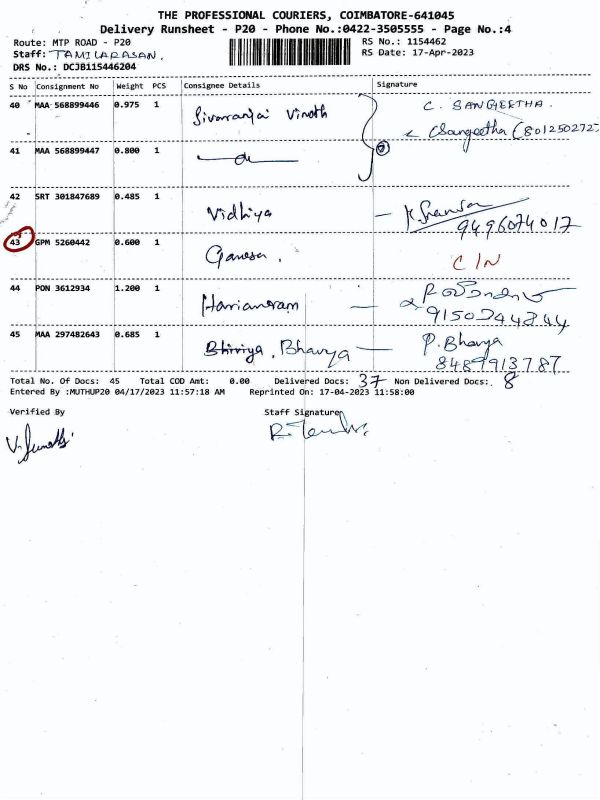 THE PROFESSIONAL COURIERS, COIMBATORE-641045
Delivery Runsheet - P20 - Phone No.:0422-3505555 - Page No.:4
Route: MTP ROAD - P20 RS No.: 1154462
Staff: TAMILARASAN. RS Date: 17-Apr-2023
DRS No.: DCJB115446204
S No Consignment No Weight PCS Consignee Details Signature
40 MAA 568899446 0.975 1 Sivarranjai Vinoth C. SANGEETHA.
CSangeetha (801250272
41 MAA 568899447 0.800 1 do
42 SRT 301847689 0.485 1 Vidhiya
9496074017
43 GPM 5260442 0.600 1 Ganesa. C/N
44 PON 3612934 1.200 1
9150344844
45 MAA 297482643 0.685 1 Bhavya P. Bhavya
8489913787
Total No. Of Docs: 45 Total COD Amt: 0.00 Delivered Docs: 37 Non Delivered Docs:. 8
Entered By :MUTHUP20 04/17/2023 11:57:18 AM Reprinted On: 17-04-2023 11:58:00
Verified By Staff Signature